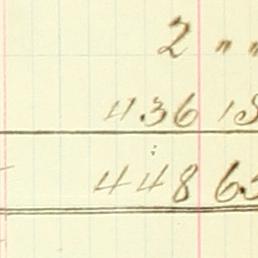 2 " "
436 15
448 63